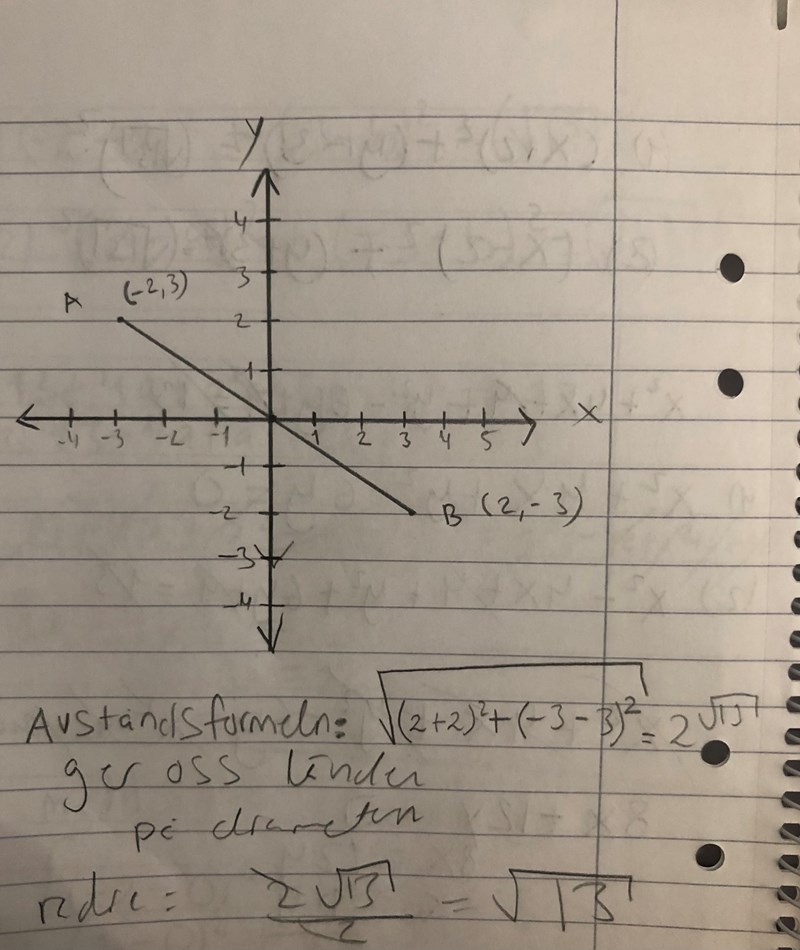 y
4
3
A (-2,3)
2
1
x
-4 -3 -2 -1 1 2 3 4 5
-1
-2
B (2,-3)
-3
-4
Avståndsformeln: √(2+2)²+(-3-3)² = 2√13
ger oss
på diametern
radie = 2√13/2 = √13